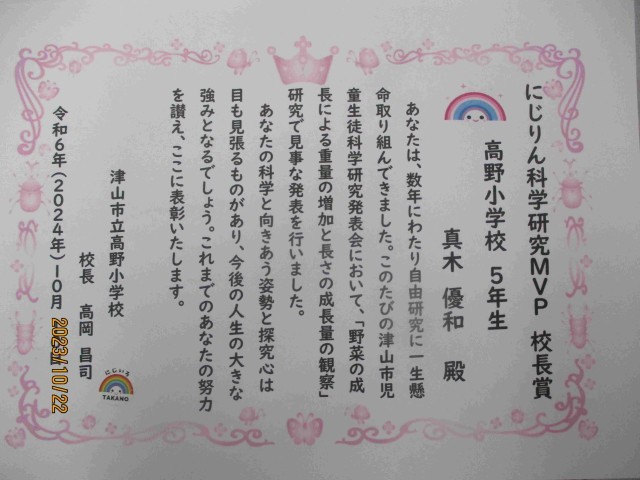 にじりん科学研究MVP 校長賞
高野小学校 5年生
真木 優和 殿
あなたは、数年にわたり自由研究に一生懸
命取り組んできました。このたびの津山市児
童生徒科学研究発表会において、「野菜の成
長による重量の増加と長さの成長量の観察」
研究で見事な発表を行いました。
あなたの科学と向きあう姿勢と探究心は
目も見張るものがあり、今後の人生の大きな
強みとなるでしょう。これまでのあなたの努力
を讃え、ここに表彰いたします。
津山市立高野小学校
校長 高岡 昌司
令和6年(2024年)10月
にじいろ
TAKANO
2023/10/22